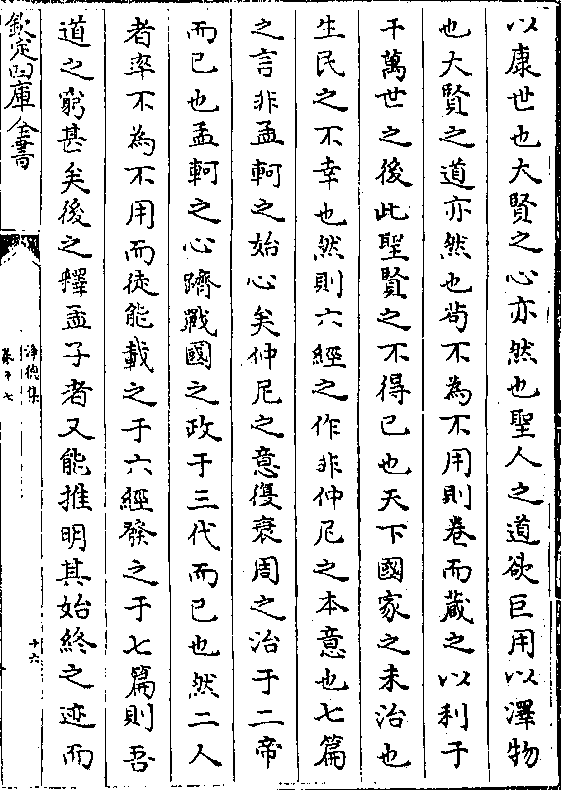 以康世也大賢之心亦然也聖人之道欲巨用以澤物
也大賢之道亦然也茍不為不用則卷而藏之以利于
千萬世之後此聖賢之不得已也天下國家之未治也
生民之不幸也然則六經之作非仲尼之本意也七篇
之言非孟軻之始心矣仲尼之意復衰周之治于二帝
而已也孟軻之心躋戰國之政于三代而已也然二人
者率不為不用而徒能載之于六經發之于七篇則吾
道之窮甚矣後之釋孟子者又能推明其始終之迹而
欽定四庫全書
淨德集
卷十七
十六